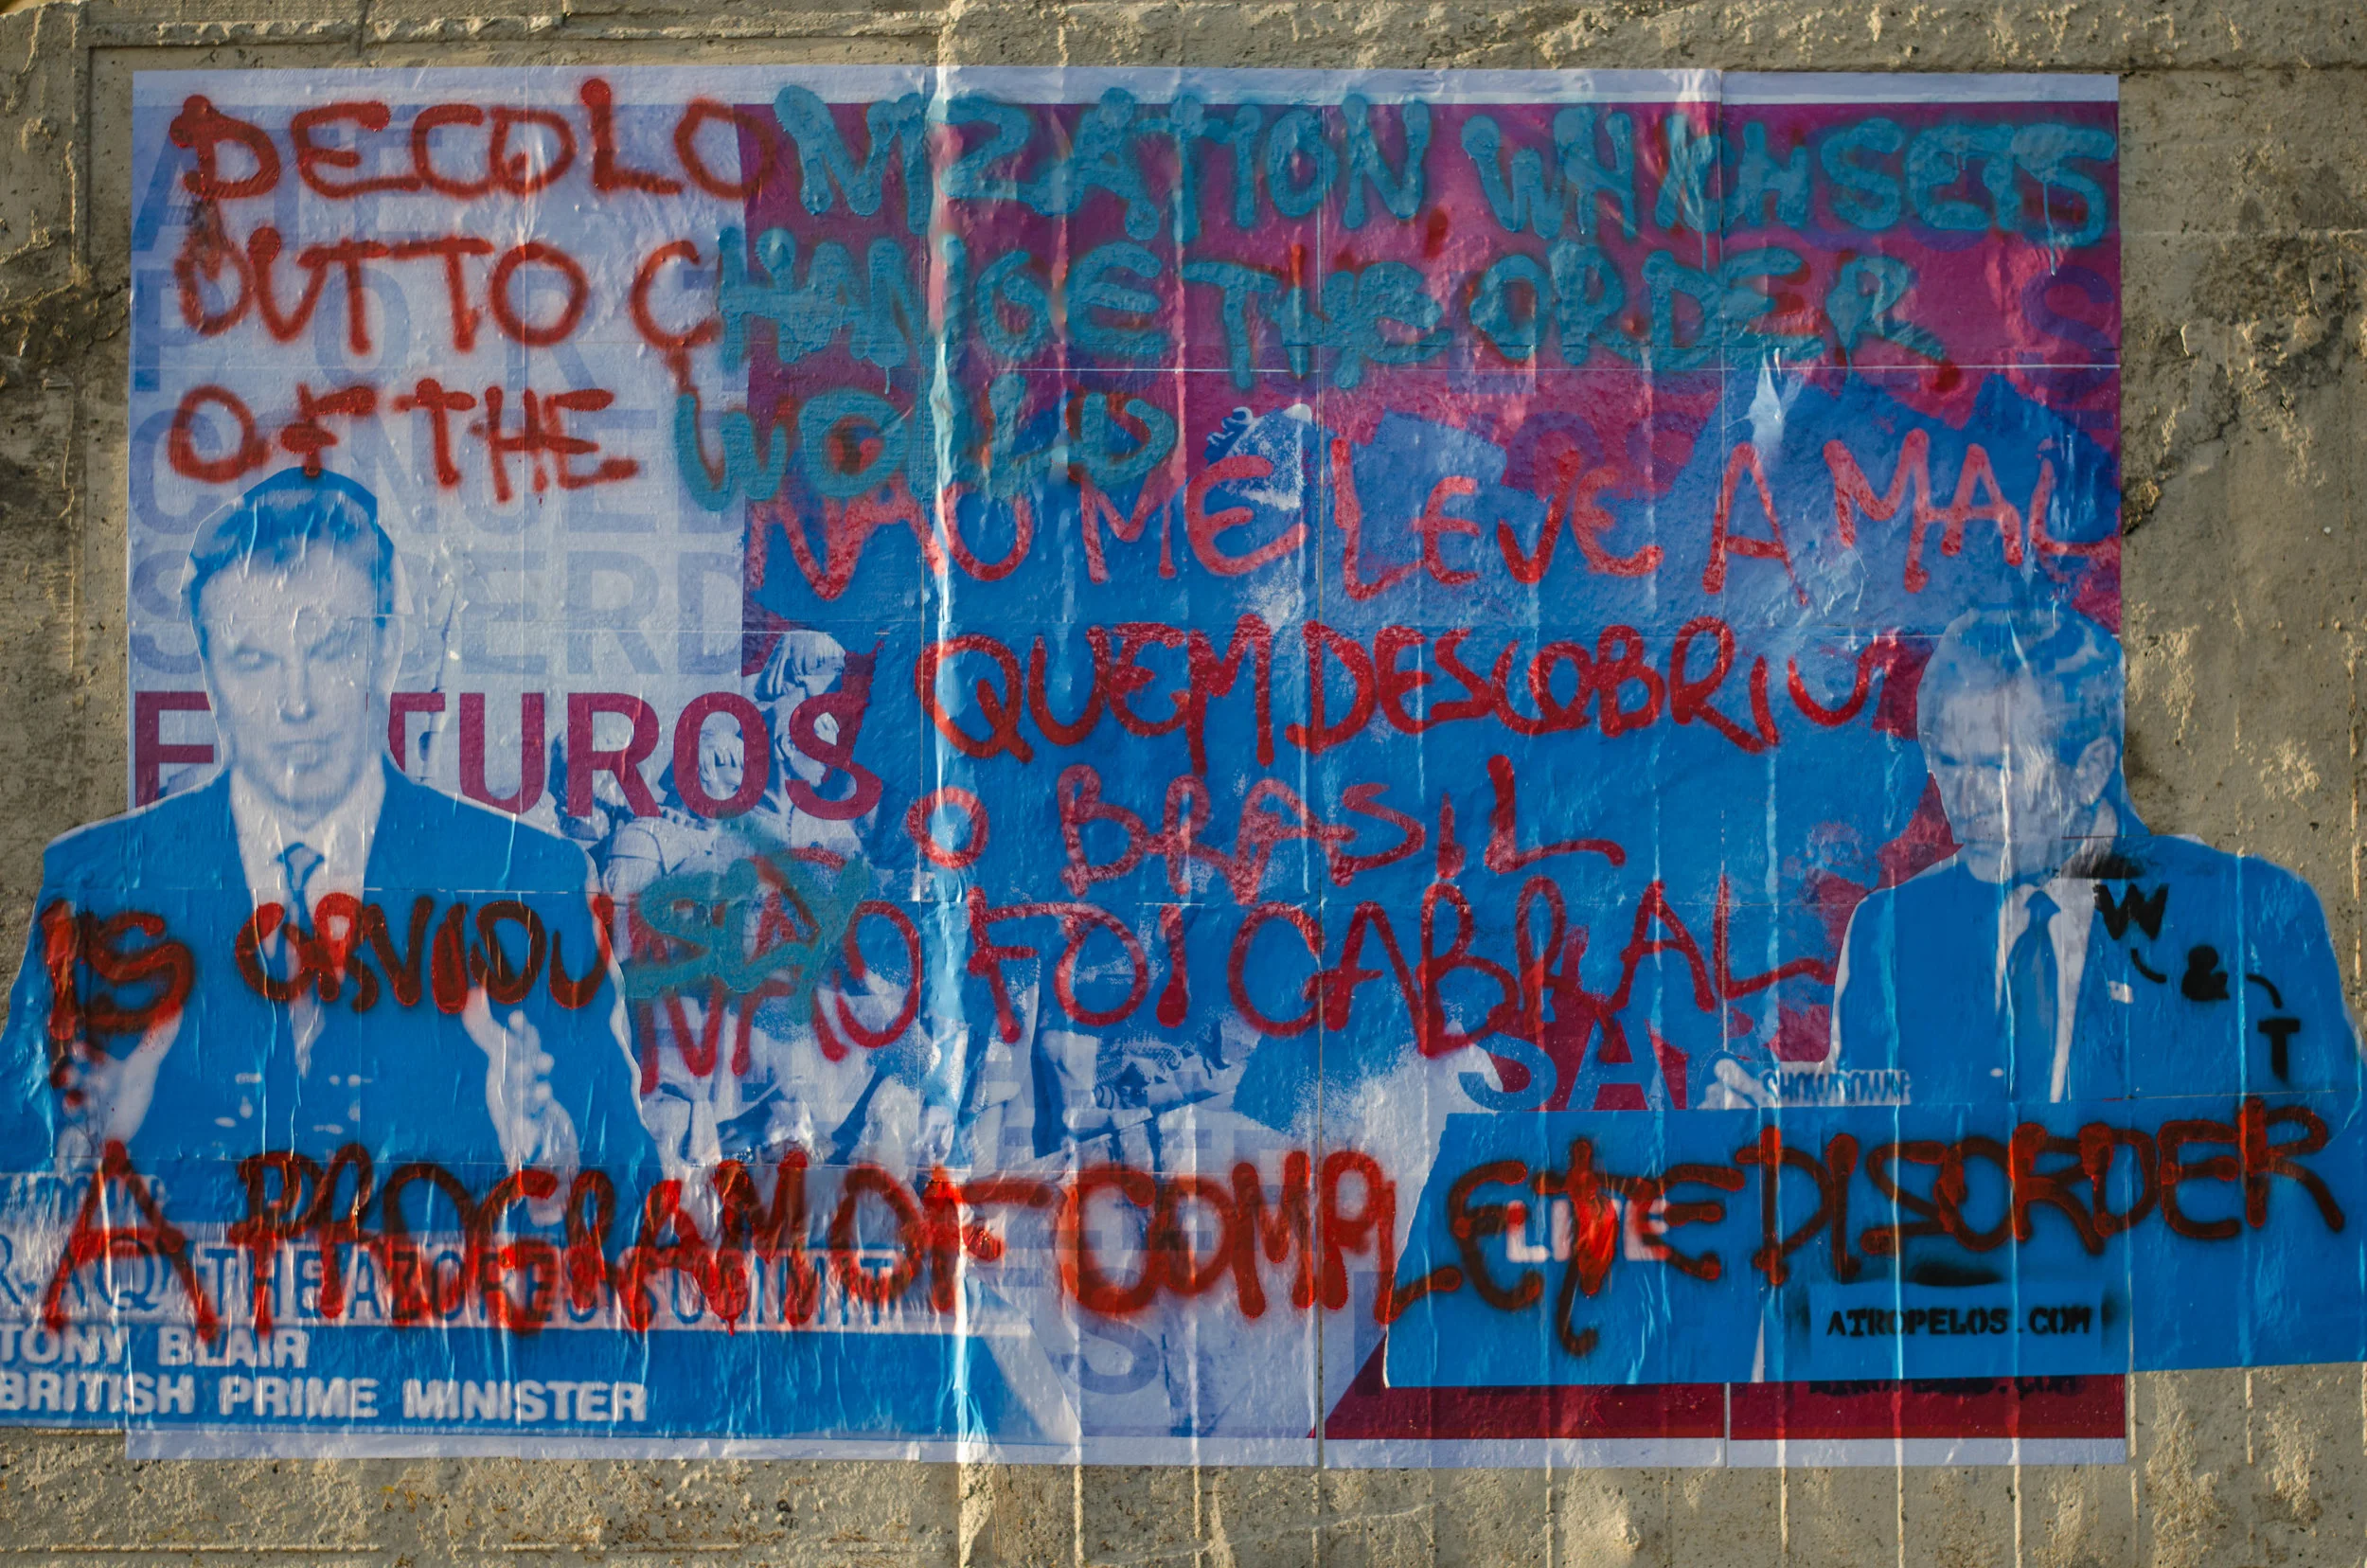 DECOLONIZATION WHICH SETS
OUT TO CHANGE THE ORDER
OF THE WORLD
NAO ME LEVE A MAL
QUEM DESCOBRIU
O BRASIL
NÃO FOI CABRAL
FUTUROS
IS OBVIOUSLY
W
&
T
SHOWDOWN:
A PROGRAM OF COMPLETE DISORDER
LIVE
THE AZORES SUMMIT
ATROPELOS.COM
TONY BLAIR
BRITISH PRIME MINISTER